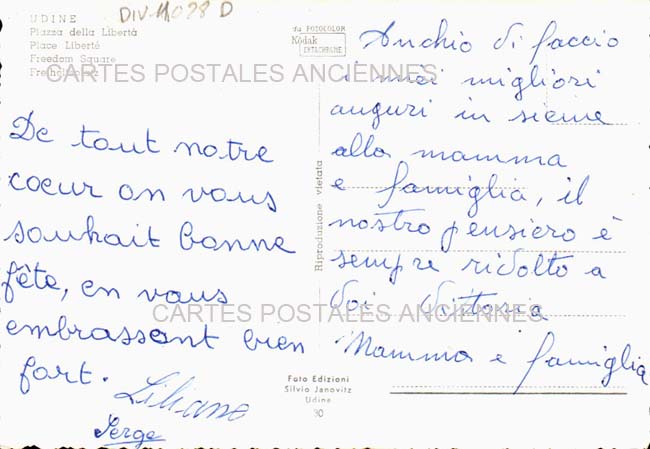 DIV-11028 D
UDINE
Piazza della Libertà
Place Liberté
Freedom Square
Freiheitplatz
CARTES POSTALES ANCIENNES
De tout notre
coeur on vous
souhait bonne
fête, en vous
embrassant bien
fort. Liliane
Serge
su FOTOCOLOR
Kodak
EKTACHROME
Riproduzione vietata
Anchio di faccio
i miei migliori
auguri in sieme
alla mamma
e famiglia, il
nostro pensiero è
sempre rivolto a
voi
CARTES POSTALES ANCIENNES
Mamma e famiglia
Foto Edizioni
Silvio Janovitz
Udine
30